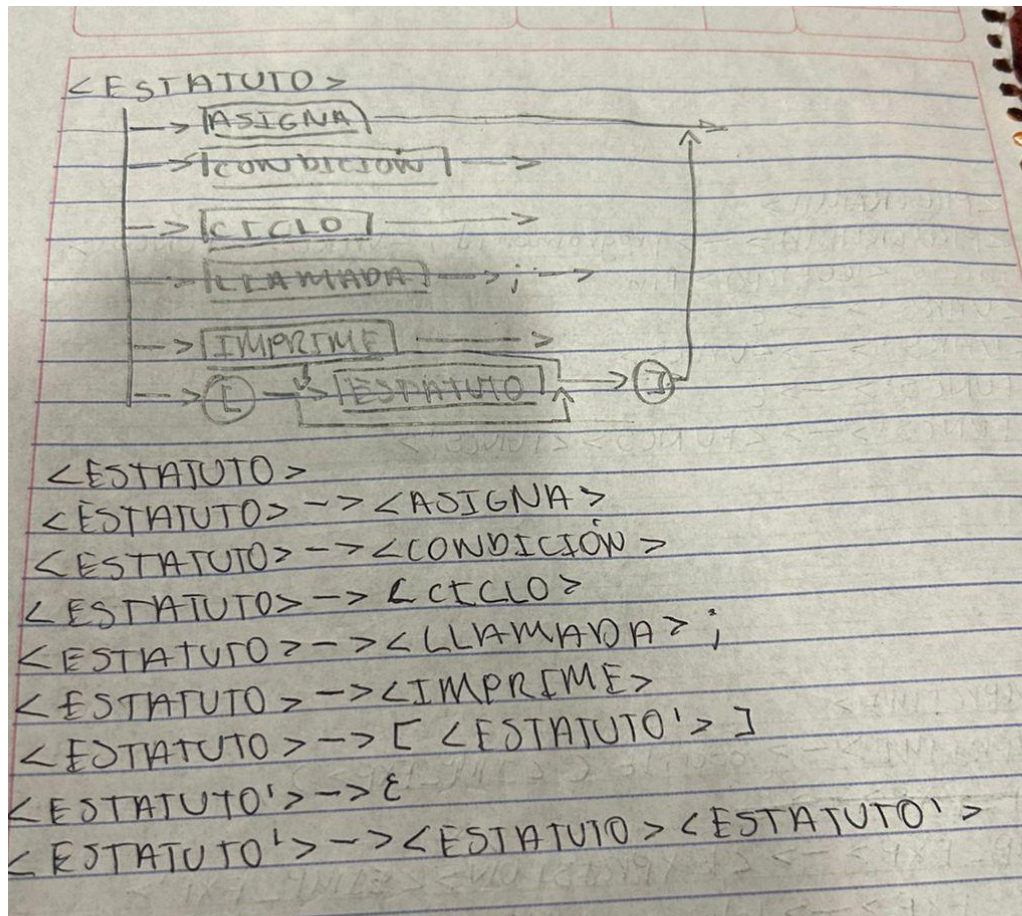 <ESTATUTO>
-> ASIGNA
-> CONDICIÓN ->
-> CICLO ->
-> LLAMADA -> ; ->
-> IMPRIME ->
-> [ -> ESTATUTO -> ]
<ESTATUTO>
<ESTATUTO> -> <ASIGNA>
<ESTATUTO> -> <CONDICIÓN>
<ESTATUTO> -> <CICLO>
<ESTATUTO> -> <LLAMADA> ;
<ESTATUTO> -> <IMPRIME>
<ESTATUTO> -> [ <ESTATUTO'> ]
<ESTATUTO'> -> ε
<ESTATUTO'> -> <ESTATUTO> <ESTATUTO'>